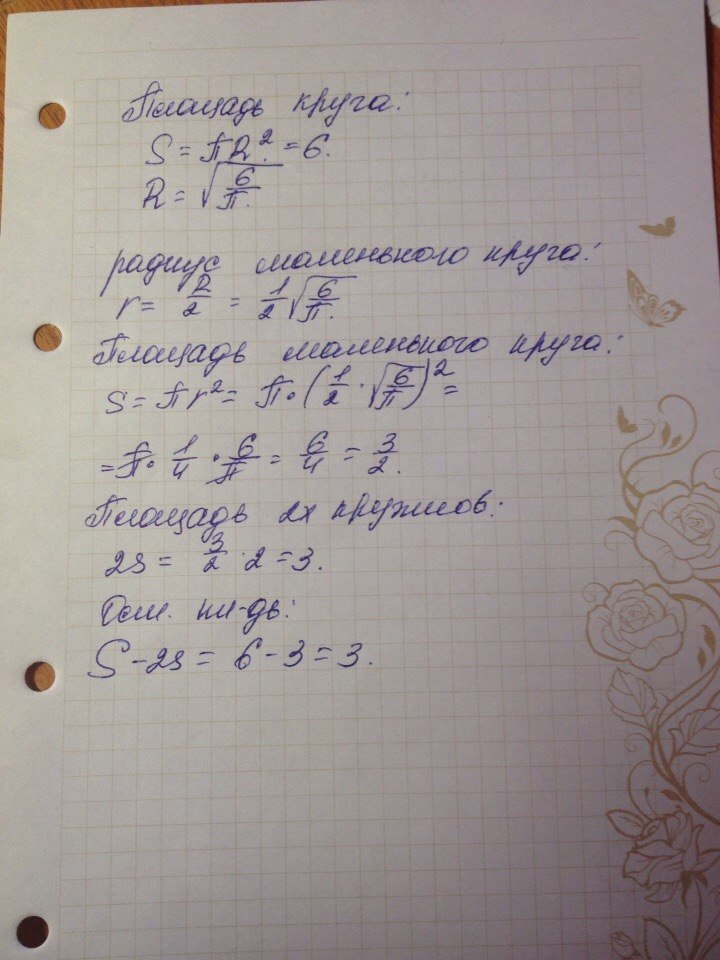 Площадь круга:
S = πR² = 6.
R = √(6/π).
радиус маленького круга:
r = R/2 = 1/2 √(6/π).
Площадь маленького круга:
s = πr² = π · (1/2 · √(6/π))² =
= π · 1/4 · 6/π = 6/4 = 3/2.
Площадь 2х кружков:
2s = 3/2 · 2 = 3.
Ост. пл-дь:
S - 2s = 6 - 3 = 3.